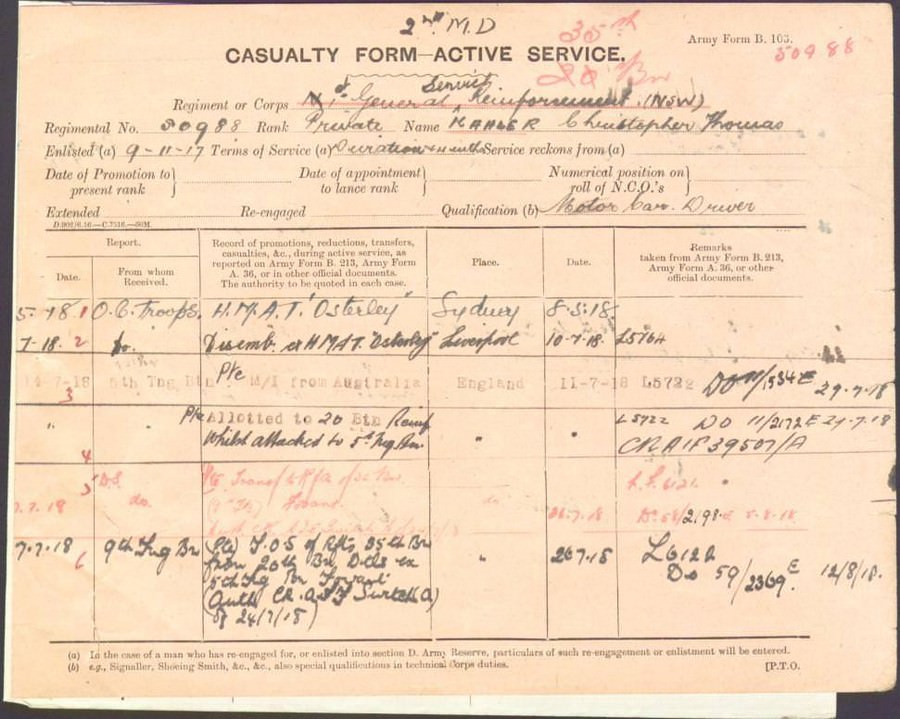 2nd M.D
35th
20 Bn
Army Form B. 103.
50988
CASUALTY FORM—ACTIVE SERVICE.
Service
Regiment or Corps General Reinforcement (NSW)
Regimental No. 50988 Rank Private Name KAHLER Christopher Thomas
Enlisted (a) 9-11-17 Terms of Service (a) Duration Service reckons from (a)
Date of Promotion to present rank
Date of appointment to lance rank
Numerical position on roll of N.C.O.'s
Extended Re-engaged Qualification (b) Motor Car Driver
Report.
Date.
From whom Received.
Record of promotions, reductions, transfers, casualties, &c., during active service, as reported on Army Form B. 213, Army Form A. 36, or in other official documents. The authority to be quoted in each case.
Place.
Date.
Remarks taken from Army Form B. 213, Army Form A. 36, or other official documents.
5-18 1 O.C. Troops. H.M.A.T. "Osterley" Sydney 8-5-18
7-18. 2 Do. Disemb. ex HMAT "Osterley" Liverpool 10-7-18. L5764
14-7-18 5th Tng Btn Pte M/I from Australia England 11-7-18 L5722 DO 11/1534E 29-7-18
3
" Pte Allotted to 20 Btn Reinf " " L5722 DO 11/2172E 29-7-18
Whilst attacked to 5th Tng Bn CRAIF 39507/A
4
5 DS
7.7.18 do. do 26.7.18 2198E 5-8-18
7-7-18 9th Tng Bn (Pte) T.O.S of Rfts 35th Bn " 26 7-18 L6122
6 from 20th Bn, Dtls ex Do 59/2369E 12/8/18.
5th Tng Bn Fovant
(Auth CR. AIF
of 24/7/18)
(a) In the case of a man who has re-engaged for, or enlisted into section D. Army Reserve, particulars of such re-engagement or enlistment will be entered.
(b) e.g., Signaller, Shoeing Smith, &c., &c., also special qualifications in technical Corps duties.
[P.T.O.